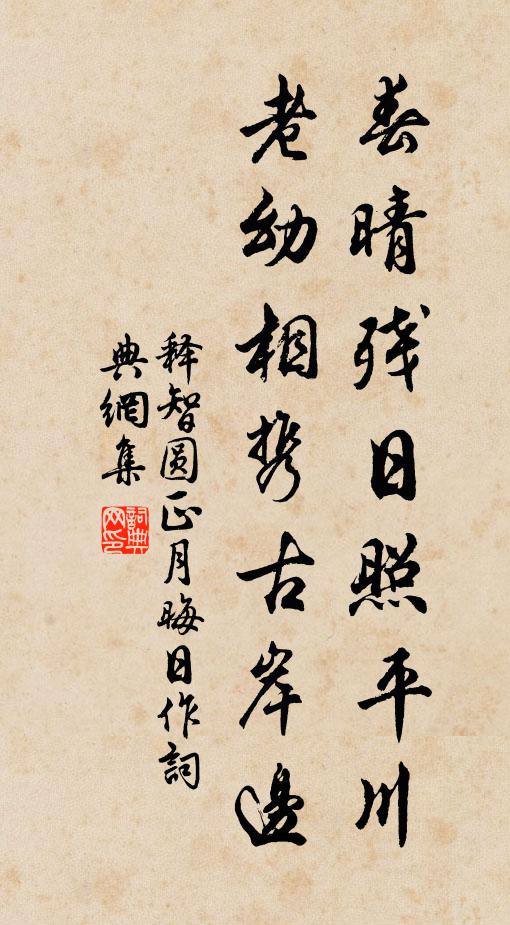 春晴残日照平川
老幼相携古岸邊
释智圆正月晦日作詞
典網集
詞典
网印